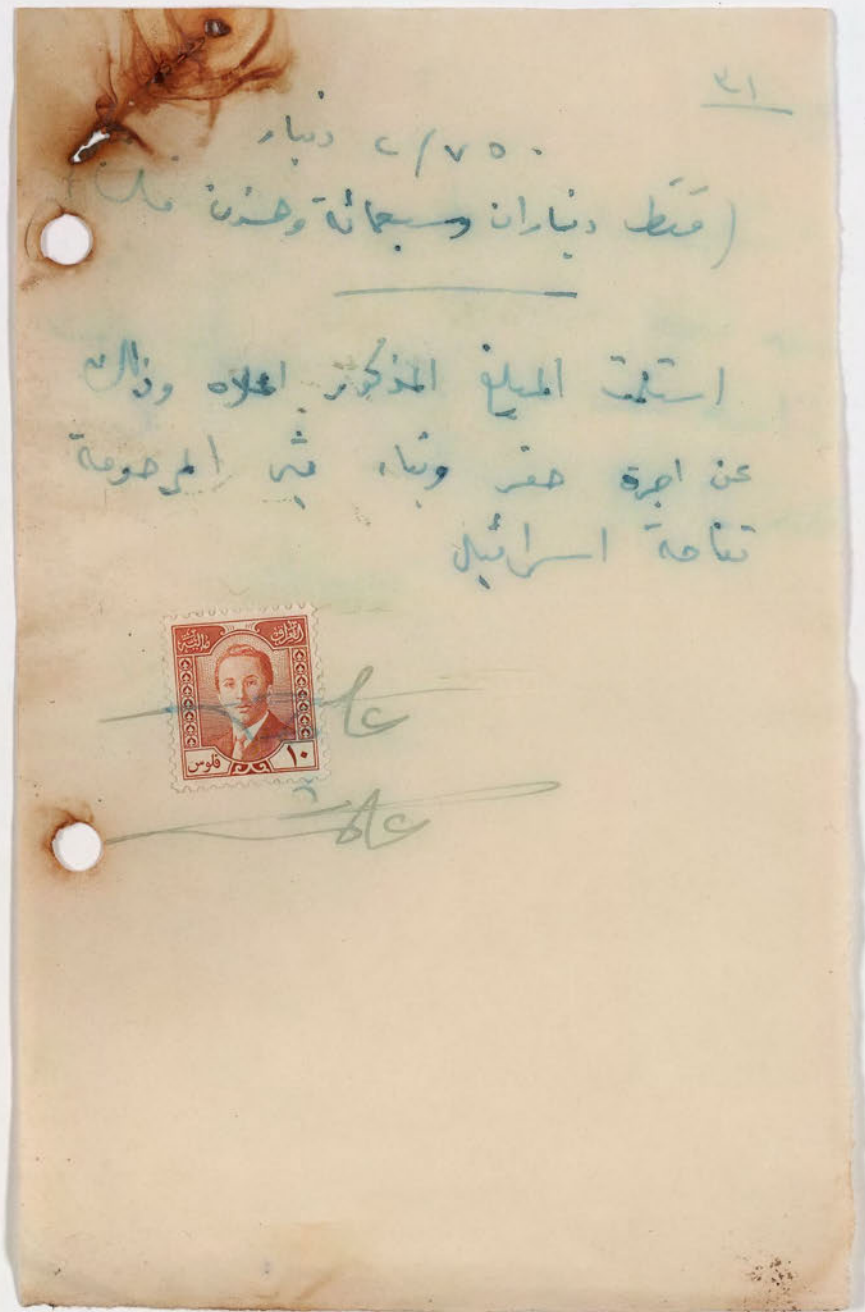 ٣١
٢/٧٥٠ دينار
(فقط ديناران وسبعمائة وخمسون فلس)
استلمت المبلغ المذكور اعلاه وذلك
عن اجرة حفر وبناء قبر المرحومة
تفاحة اسرائيل
العراق مالية
١٠ فلوس